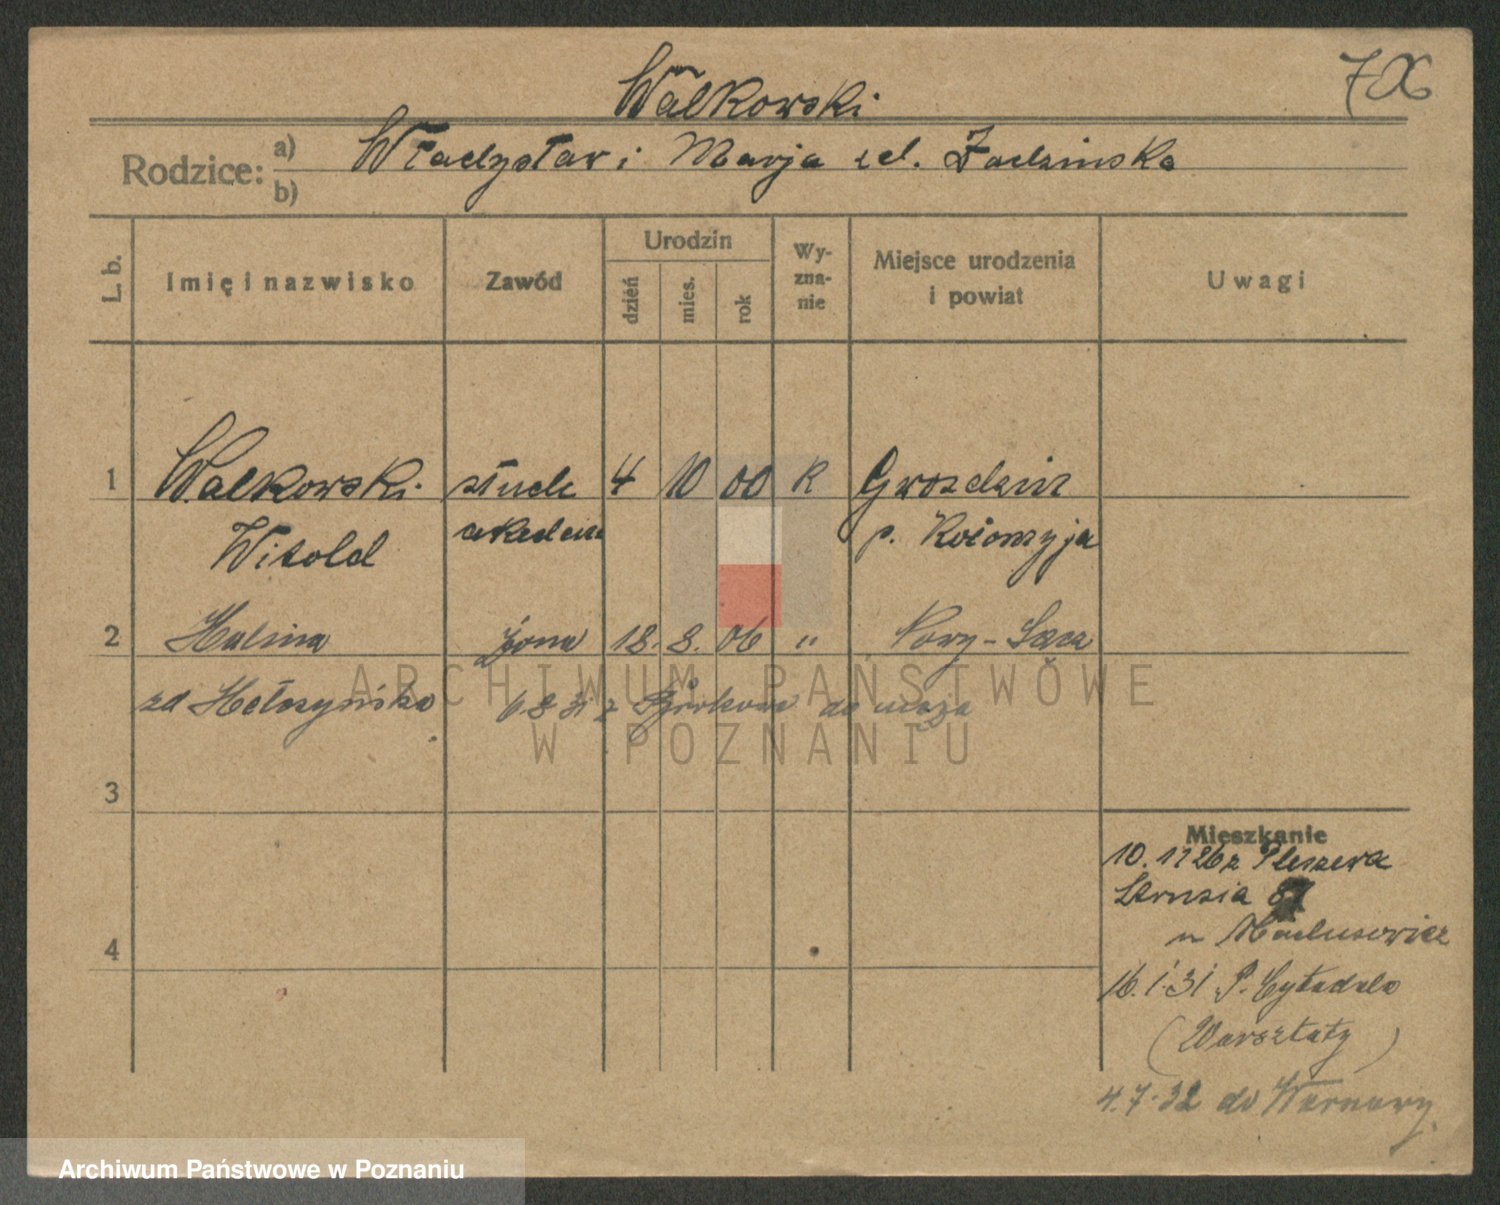 Walkowski
7X
Rodzice: a) Władysław i Marja zd. Zadzinska
b)
L. b.
Imię i nazwisko
Zawód
Urodzin
dzień
mies.
rok
Wy-
zna-
nie
Miejsce urodzenia
i powiat
Uwagi
1 Walkowski stud 4 10 00 R Gwozdziec
Witold akadem p. Kołomyja
2 Halina żona 18. 8. 06 " Nowy-Sącz
zd Hełoszyńska 6 8 31 z do męża
3
4
Mieszkanie
10. 11 26 z Pleszewa
Strusia
u Maclusowicz
16. 1. 31 P. Cytadela
(Warsztaty)
4. 7. 32 do Warszawy
ARCHIWUM PAŃSTWOWE
W POZNANIU
Archiwum Państwowe w Poznaniu